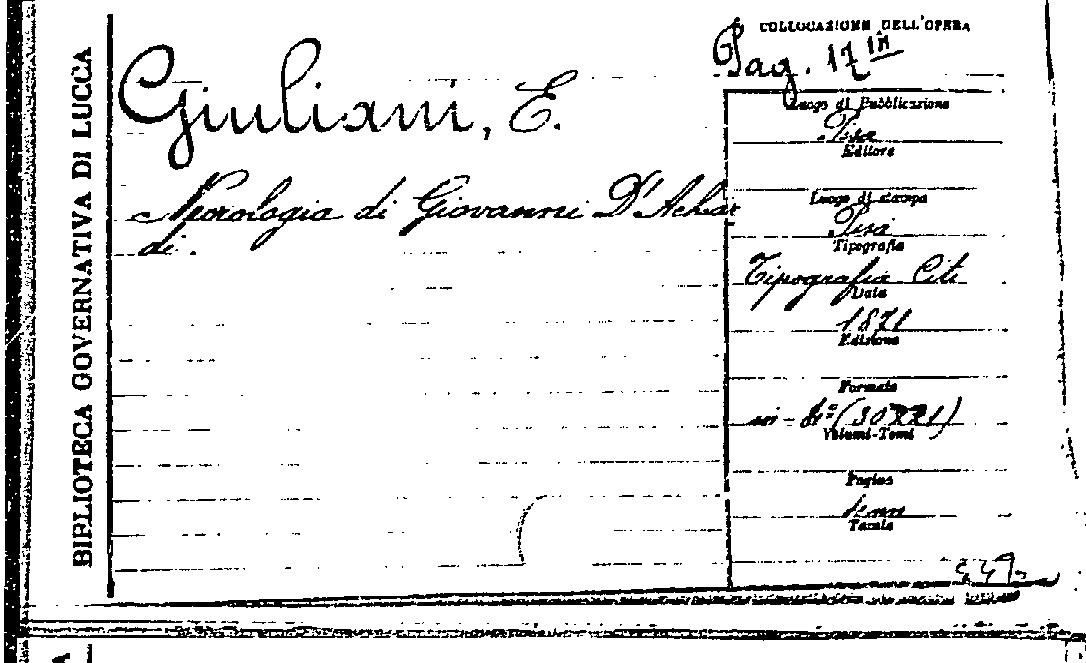 BIBLIOTECA GOVERNATIVA DI LUCCA
Giuliani, E.
Necrologia di Giovanni D'Achiar
di.
COLLOCAZIONE DELL'OPERA
Pag. 17
Luogo di Pubblicazione
Pisa
Editore
Luogo di stampa
Pisa
Tipografia
Tipografia Citi
Data
1871
Edizione
Formato
in-4º (30X21)
Volumi-Tomi
Pagine
Tavole